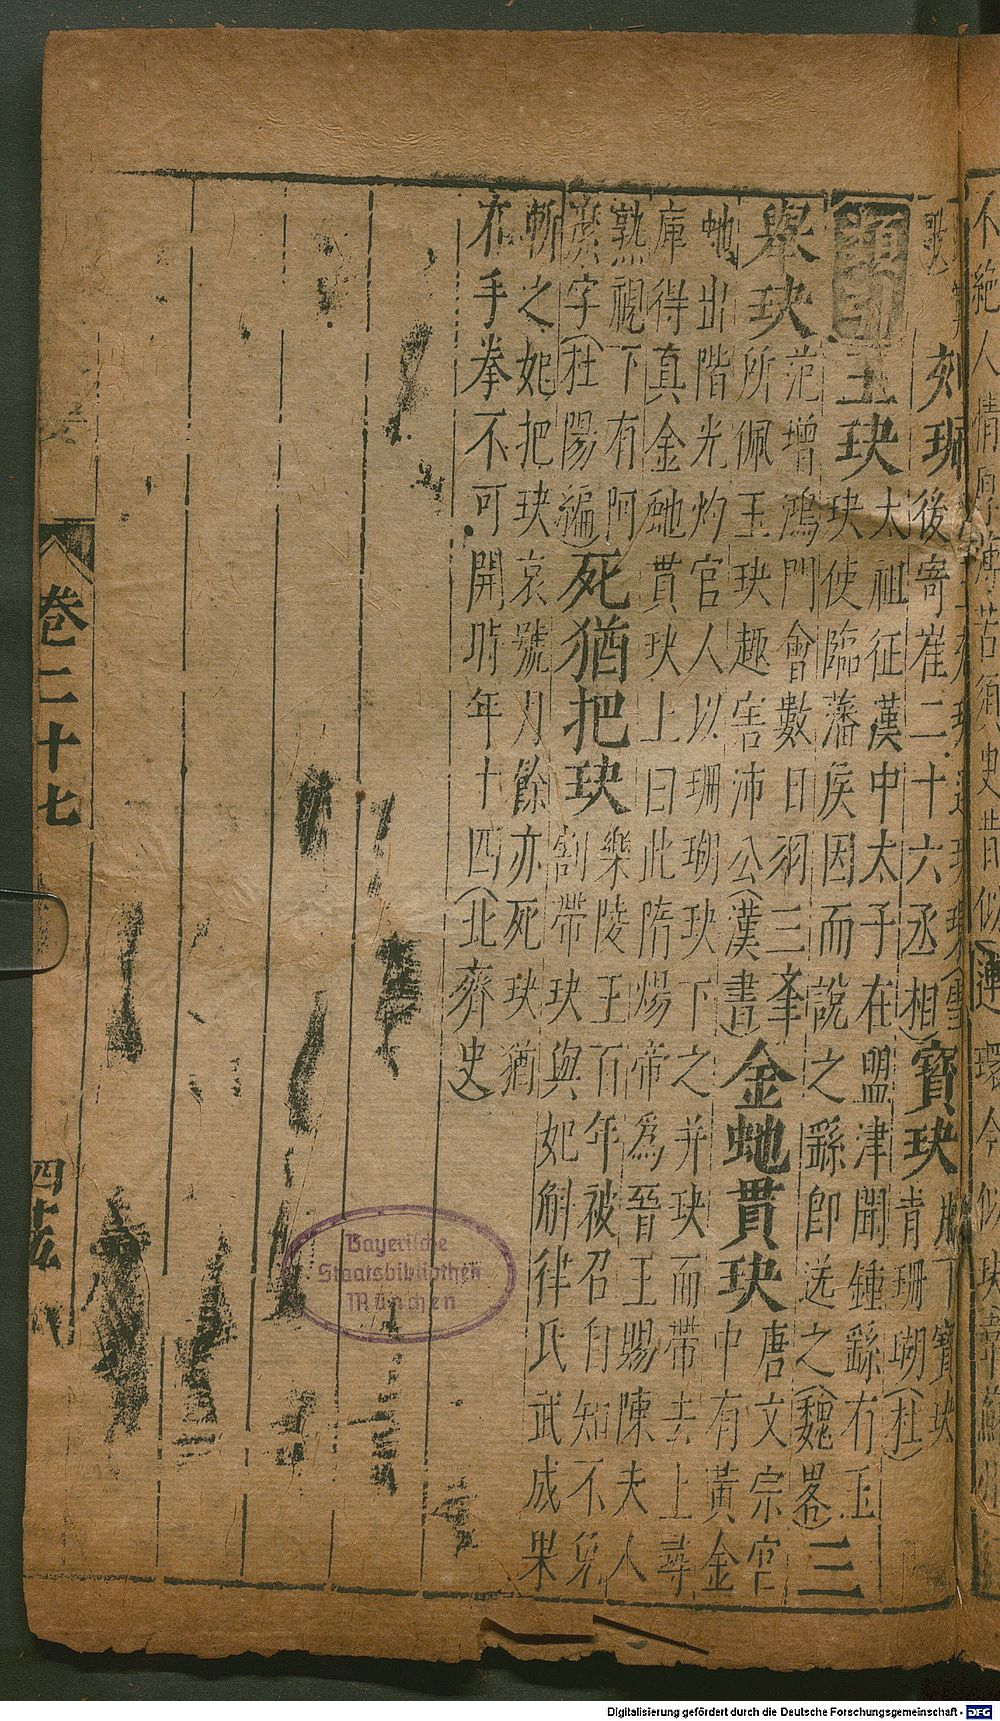 不絕人情
刻珮
後寄崔二十六丞相)
寶玦
腰下寶玦
青珊瑚(杜)
玉玦
太祖征漢中太子在盟津聞鍾繇有玉
玦使臨藩侯因而說之繇即送之(魏畧)
三
舉玦
范增鴻門會數目羽三舉
所佩玉玦趣害沛公(漢書)
金虵貫玦
唐文宗官
中有黃金
虵出階光灼官人以珊瑚玦下之并玦而帶去上尋
庫得真金虵貫玦上曰此隋煬帝為晉王賜陳夫人
熟視下有阿
麼字(杜陽編)
死猶把玦
樂陵王百年被召自知不免
割帶玦與妃斛律氏武成果
斬之妃把玦哀號月餘亦死玦猶
在手拳不可開時年十四(北齊史)
卷二十七
Bayerische
Staatsbibliothek
München
Digitalisierung gefördert durch die Deutsche Forschungsgemeinschaft - DFG